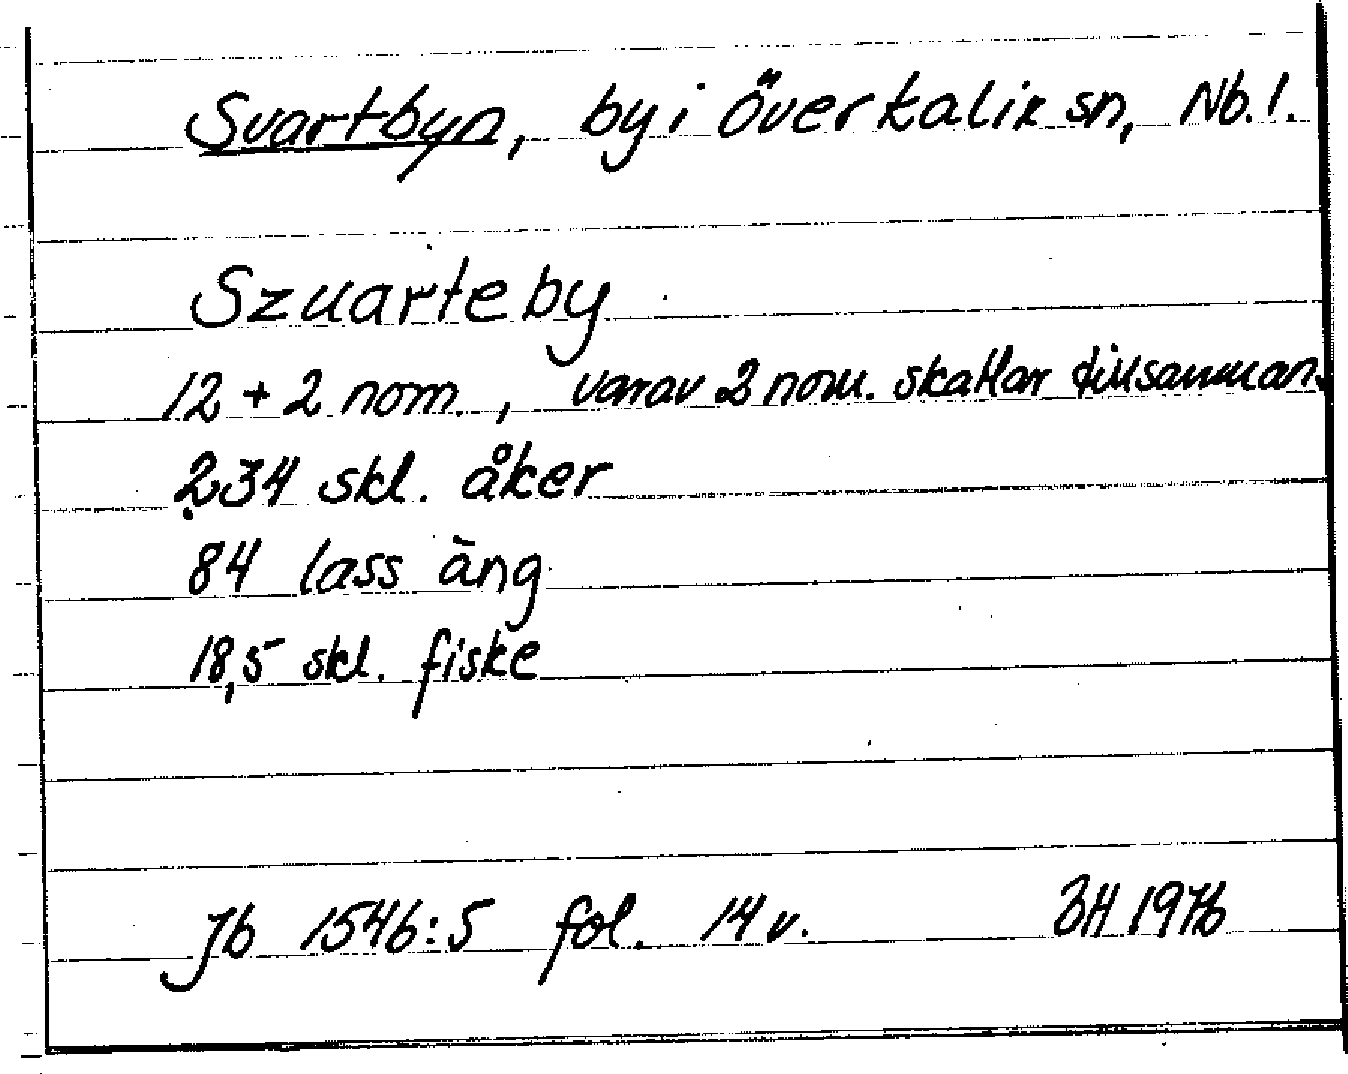 Svartbyn, by i Överkalix sn, Nb.l.
Szuarteby
12 + 2 nom., varav 2 nom. skattar tillsamman.
234 skl. åker
84 lass äng
18,5 skl. fiske
Jb 1546:5 fol. 14 v. 1976